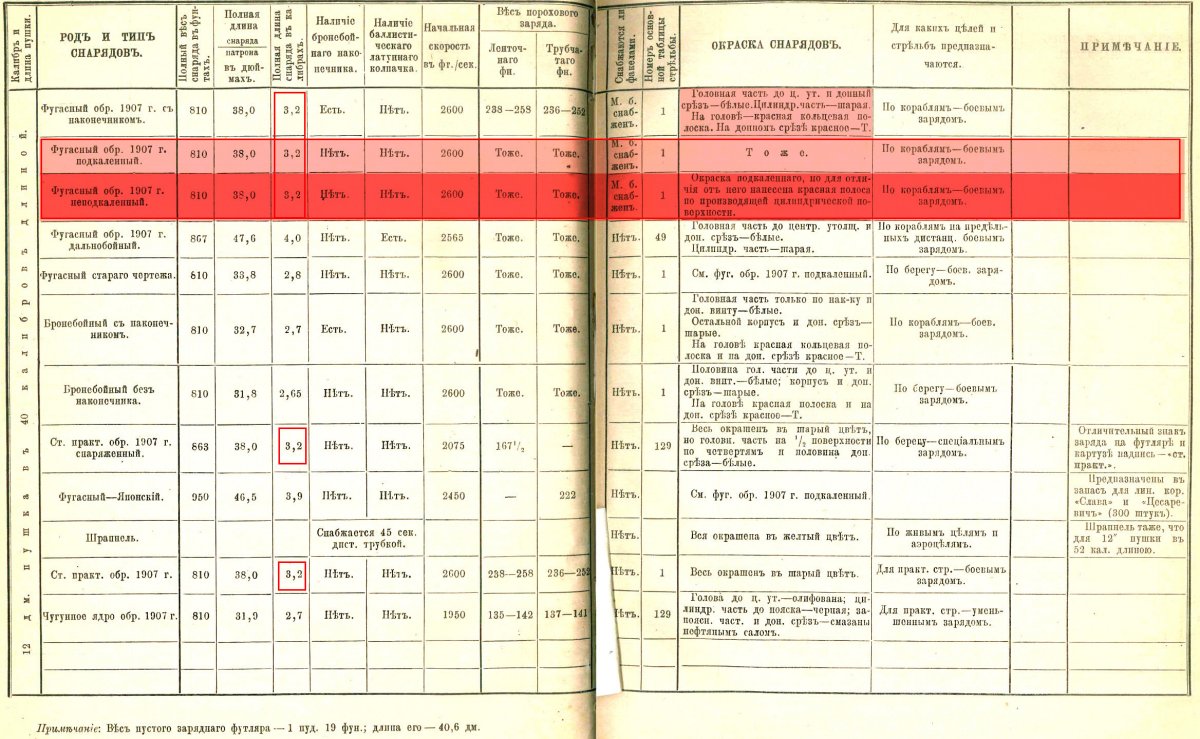 Калибръ и длина пушки.
РОДЪ И ТИПЪ СНАРЯДОВЪ.
Полный вѣсъ снаряда въ фунтахъ.
Полная длина снаряда патрона въ дюймахъ.
Полная длина снаряда въ калибрахъ.
Наличіе бронебойнаго наконечника.
Наличіе баллистическаго латуннаго колпачка.
Начальная скорость въ фт./сек.
Вѣсъ порохового заряда.
Ленточнаго фн.
Трубчатаго фн.
Снабжаются ли факелами.
Номеръ основной таблицы стрѣльбы.
ОКРАСКА СНАРЯДОВЪ.
Для какихъ цѣлей и стрѣльбъ предназначаются.
ПРИМѢЧАНІЕ.
12 дм. пушка въ 40 калибровъ длиной.
Фугасный обр. 1907 г. съ наконечникомъ. 810 38,0 3,2 Есть. Нѣтъ. 2600 238—258 236—252 М. б. снабженъ. 1
Головная часть до ц. ут. и донный
срѣзъ—бѣлые. Цилиндр. часть—шарая.
На головѣ—красная кольцевая полоска. На донномъ срѣзѣ красное—Т.
По кораблямъ—боевымъ зарядомъ.
Фугасный обр. 1907 г. подкаленный. 810 38,0 3,2 Нѣтъ. Нѣтъ. 2600 Тоже. Тоже. М. б. снабженъ. 1 Тоже. По кораблямъ—боевымъ зарядомъ.
Фугасный обр. 1907 г. неподкаленный. 810 38,0 3,2 Нѣтъ. Нѣтъ. 2600 Тоже. Тоже. М. б. снабженъ. 1
Окраска подкаленнаго, но для отличія отъ него нанесена красная полоса
по производящей цилиндрической поверхности.
По кораблямъ—боевымъ зарядомъ.
Фугасный обр. 1907 г. дальнобойный. 867 47,6 4,0 Нѣтъ. Есть. 2565 Тоже. Тоже. Нѣтъ. 49
Головная часть до центр. утолщ. и
дон. срѣзъ—бѣлые.
Цилиндр. часть—шарая.
По кораблямъ на предѣльныхъ дистанц. боевымъ зарядомъ.
Фугасный стараго чертежа. 810 33,8 2,8 Нѣтъ. Нѣтъ. 2600 Тоже. Тоже. Нѣтъ. 1 См. фуг. обр. 1907 г. подкаленный. По берегу—боев. зарядомъ.
Бронебойный съ наконечникомъ. 810 32,7 2,7 Есть. Нѣтъ. 2600 Тоже. Тоже. Нѣтъ. 1
Головная часть только по нак-ку и
дон. винту—бѣлые.
Остальной корпусъ и дон. срѣзъ—
шарые.
На головѣ красная кольцевая полоска и на дон. срѣзѣ красное—Т.
По кораблямъ—боев. зарядомъ.
Бронебойный безъ наконечника. 810 31,8 2,65 Нѣтъ. Нѣтъ. 2600 Тоже. Тоже. Нѣтъ. 1
Половина гол. части до ц. ут. и
дон. винт.—бѣлые; корпусъ и дон.
срѣзъ—шарые.
На головѣ красная полоска и на
дон. срѣзѣ красное—Т.
По берегу—боевымъ зарядомъ.
Ст. практ. обр. 1907 г. снаряженный. 863 38,0 3,2 Нѣтъ. Нѣтъ. 2075 167 1/2 — Нѣтъ. 129
Весь окрашенъ въ шарый цвѣтъ,
но головн. часть на 1/2 поверхности
по четвертямъ и половина дон.
срѣза—бѣлые.
По берегу—спеціальнымъ зарядомъ.
Отличительный знакъ
заряда на футлярѣ и
картузѣ надпись—«ст.
практ.».
Фугасный—Японскій. 950 46,5 3,9 Нѣтъ. Нѣтъ. 2450 — 222 Нѣтъ. См. фуг. обр. 1907 г. подкаленный.
Предназначены въ
запасъ для лин. кор.
«Слава» и «Цесаревичъ» (300 штукъ).
Шрапнель. Снабжается 45 сек. дист. трубкой. Нѣтъ. Вся окрашена въ желтый цвѣтъ. По живымъ цѣлямъ и аэроцѣлямъ.
Шрапнель таже, что
для 12″ пушки въ
52 кал. длиною.
Ст. практ. обр. 1907 г. 810 38,0 3,2 Нѣтъ. Нѣтъ. 2600 238—258 236—252 Нѣтъ. 1 Весь окрашенъ въ шарый цвѣтъ. Для практ. стр.—боевымъ зарядомъ.
Чугунное ядро обр. 1907 г. 810 31,9 2,7 Нѣтъ. Нѣтъ. 1950 135—142 137—141 Нѣтъ. 129
Голова до ц. ут.—олифована; цилиндр. часть до пояска—черная; запоясн. част. и дон. срѣзъ—смазаны
нефтянымъ саломъ.
Для практ. стр.—уменьшеннымъ зарядомъ.
Примѣчаніе: Вѣсъ пустого заряднаго футляра—1 пуд. 19 фун.; длина его—40,6 дм.